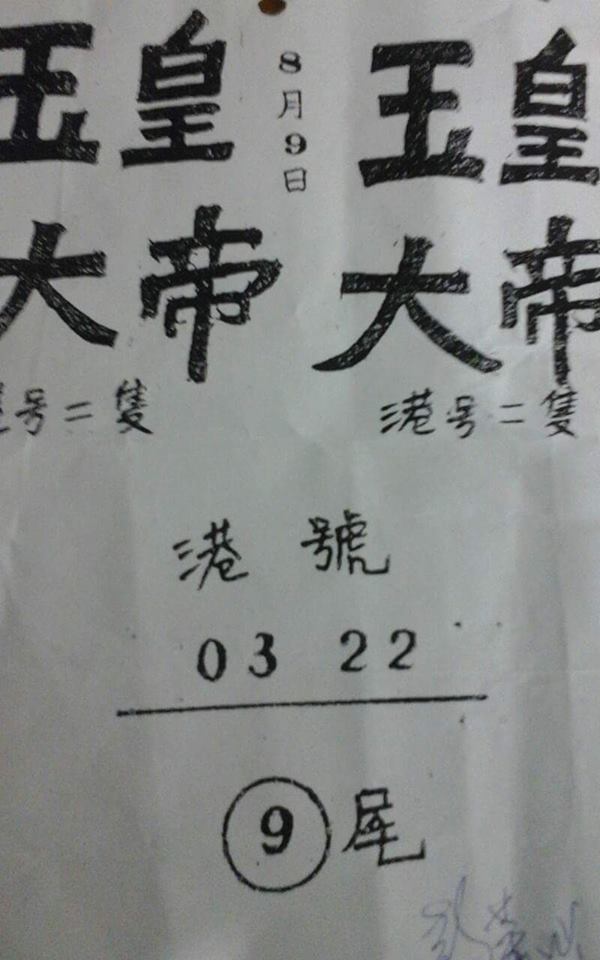 玉皇
大帝
8月9日
玉皇
大帝
港号二隻
港号二隻
港號
03 22
⑨尾